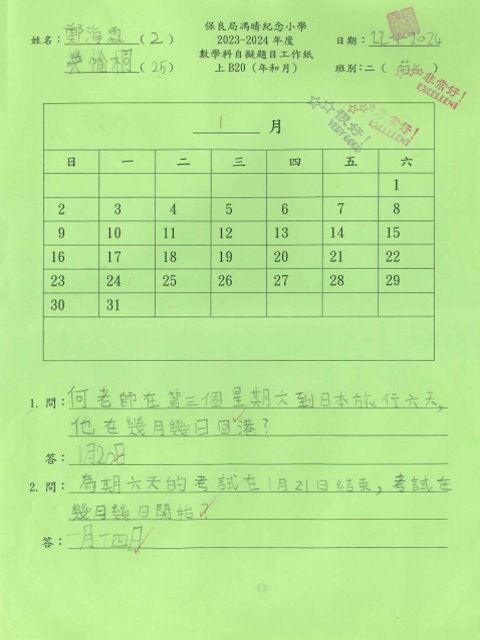 保良局馮晴紀念小學
姓名：鄭海(2)
2023-2024 年度
日期：22-4-2024
(25)
數學科自擬題目工作紙
上 B20（年和月）
班別：二（）
非常好！
EXCELLENT
非常好！
EXCELLENT
很好！
VERY GOOD
1 月
日 一 二 三 四 五 六
1
2 3 4 5 6 7 8
9 10 11 12 13 14 15
16 17 18 19 20 21 22
23 24 25 26 27 28 29
30 31
1. 問：何老師在第三個星期六到日本旅行六天，
他在幾月幾日回港？
答：1月20日
2. 問：為期六天的考試在1月21日結束，考試在
幾月幾日開始？
答：一月十四日